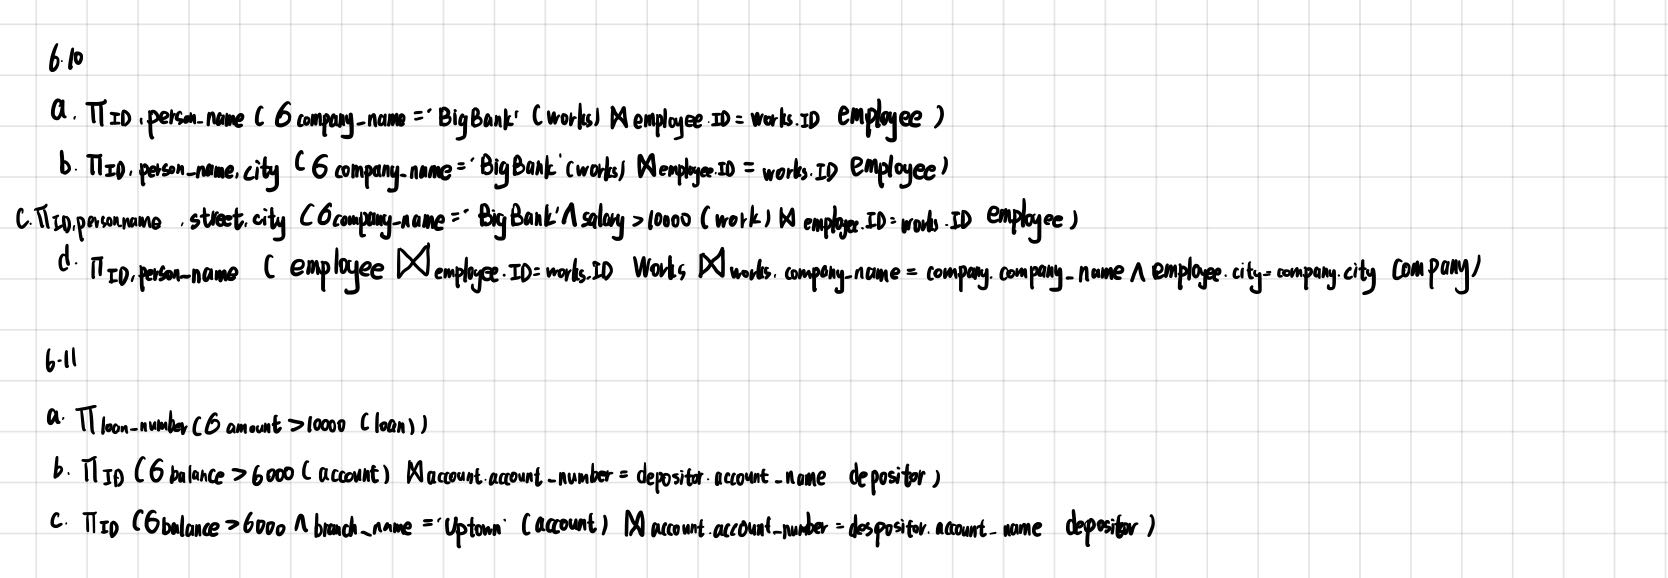 6.10
a. Π ID, person_name (σ company_name = 'BigBank' (works) ⋈ employee.ID = works.ID employee)
b. Π ID, person_name, city (σ company_name = 'BigBank' (works) ⋈ employee.ID = works.ID employee)
c. Π ID, person name, street, city (σ company_name = 'BigBank' ∧ salary > 10000 (work) ⋈ employee.ID = works.ID employee)
d. Π ID, person_name (employee ⋈ employee.ID = works.ID Works ⋈ works.company_name = company.company_name ∧ employee.city = company.city company)
6.11
a. Π loan_number (σ amount > 10000 (loan))
b. Π ID (σ balance > 6000 (account) ⋈ account.account_number = depositor.account_name depositor)
c. Π ID (σ balance > 6000 ∧ branch_name = 'Uptown' (account) ⋈ account.account_number = despositor.account_name depositor)